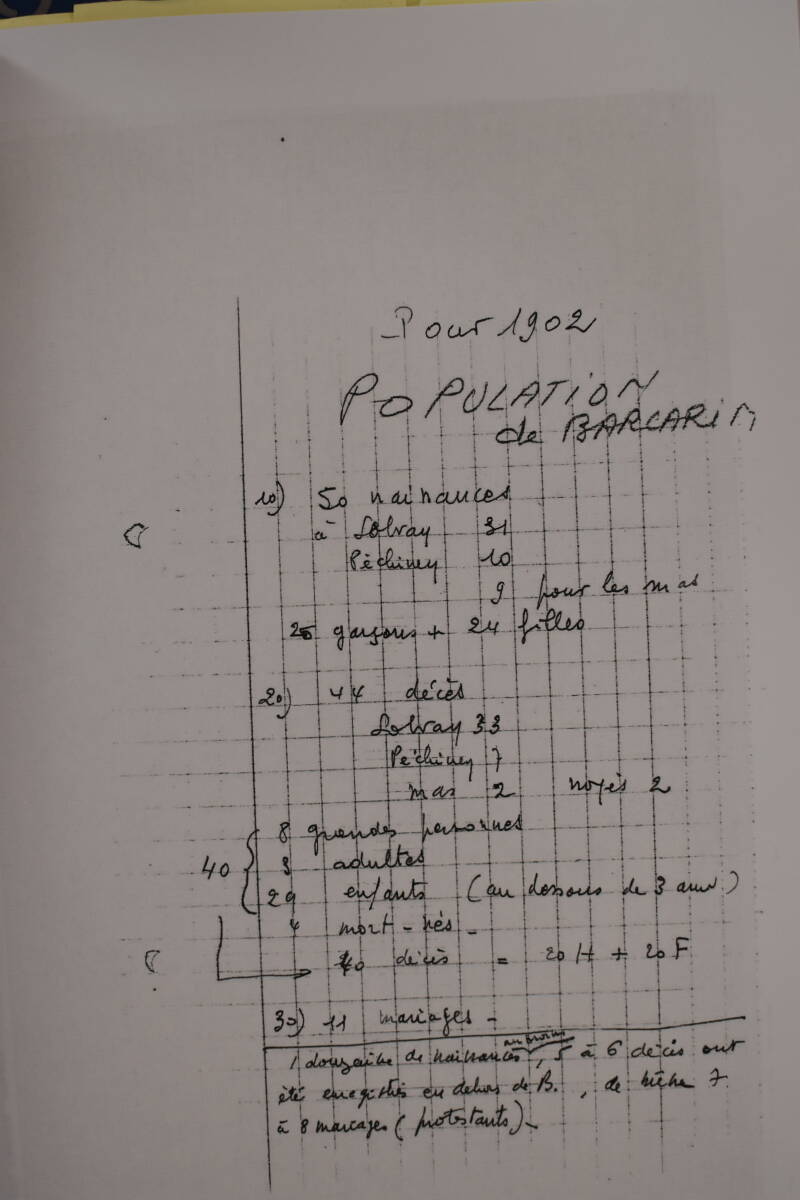 Pour 1902
POPULATION
de BARCARIN
1o) 50 naissances
à Solvay 31
Péchiney 10
9 pour les mas
25 garçons + 24 filles
2o) 44 décès
Solvay 33
Péchiney 7
mas 2 noyés 2
8 grandes personnes
3 adultes
40 { 29 enfants (au dessous de 3 ans)
4 mort-nés -
40 décès = 20 H + 20 F
3o) 11 mariages -
au moins
1 douzaine de naissances, 5 à 6 décès ont
été enregistrés en dehors de B., de même 7
à 8 mariages (protestants) -